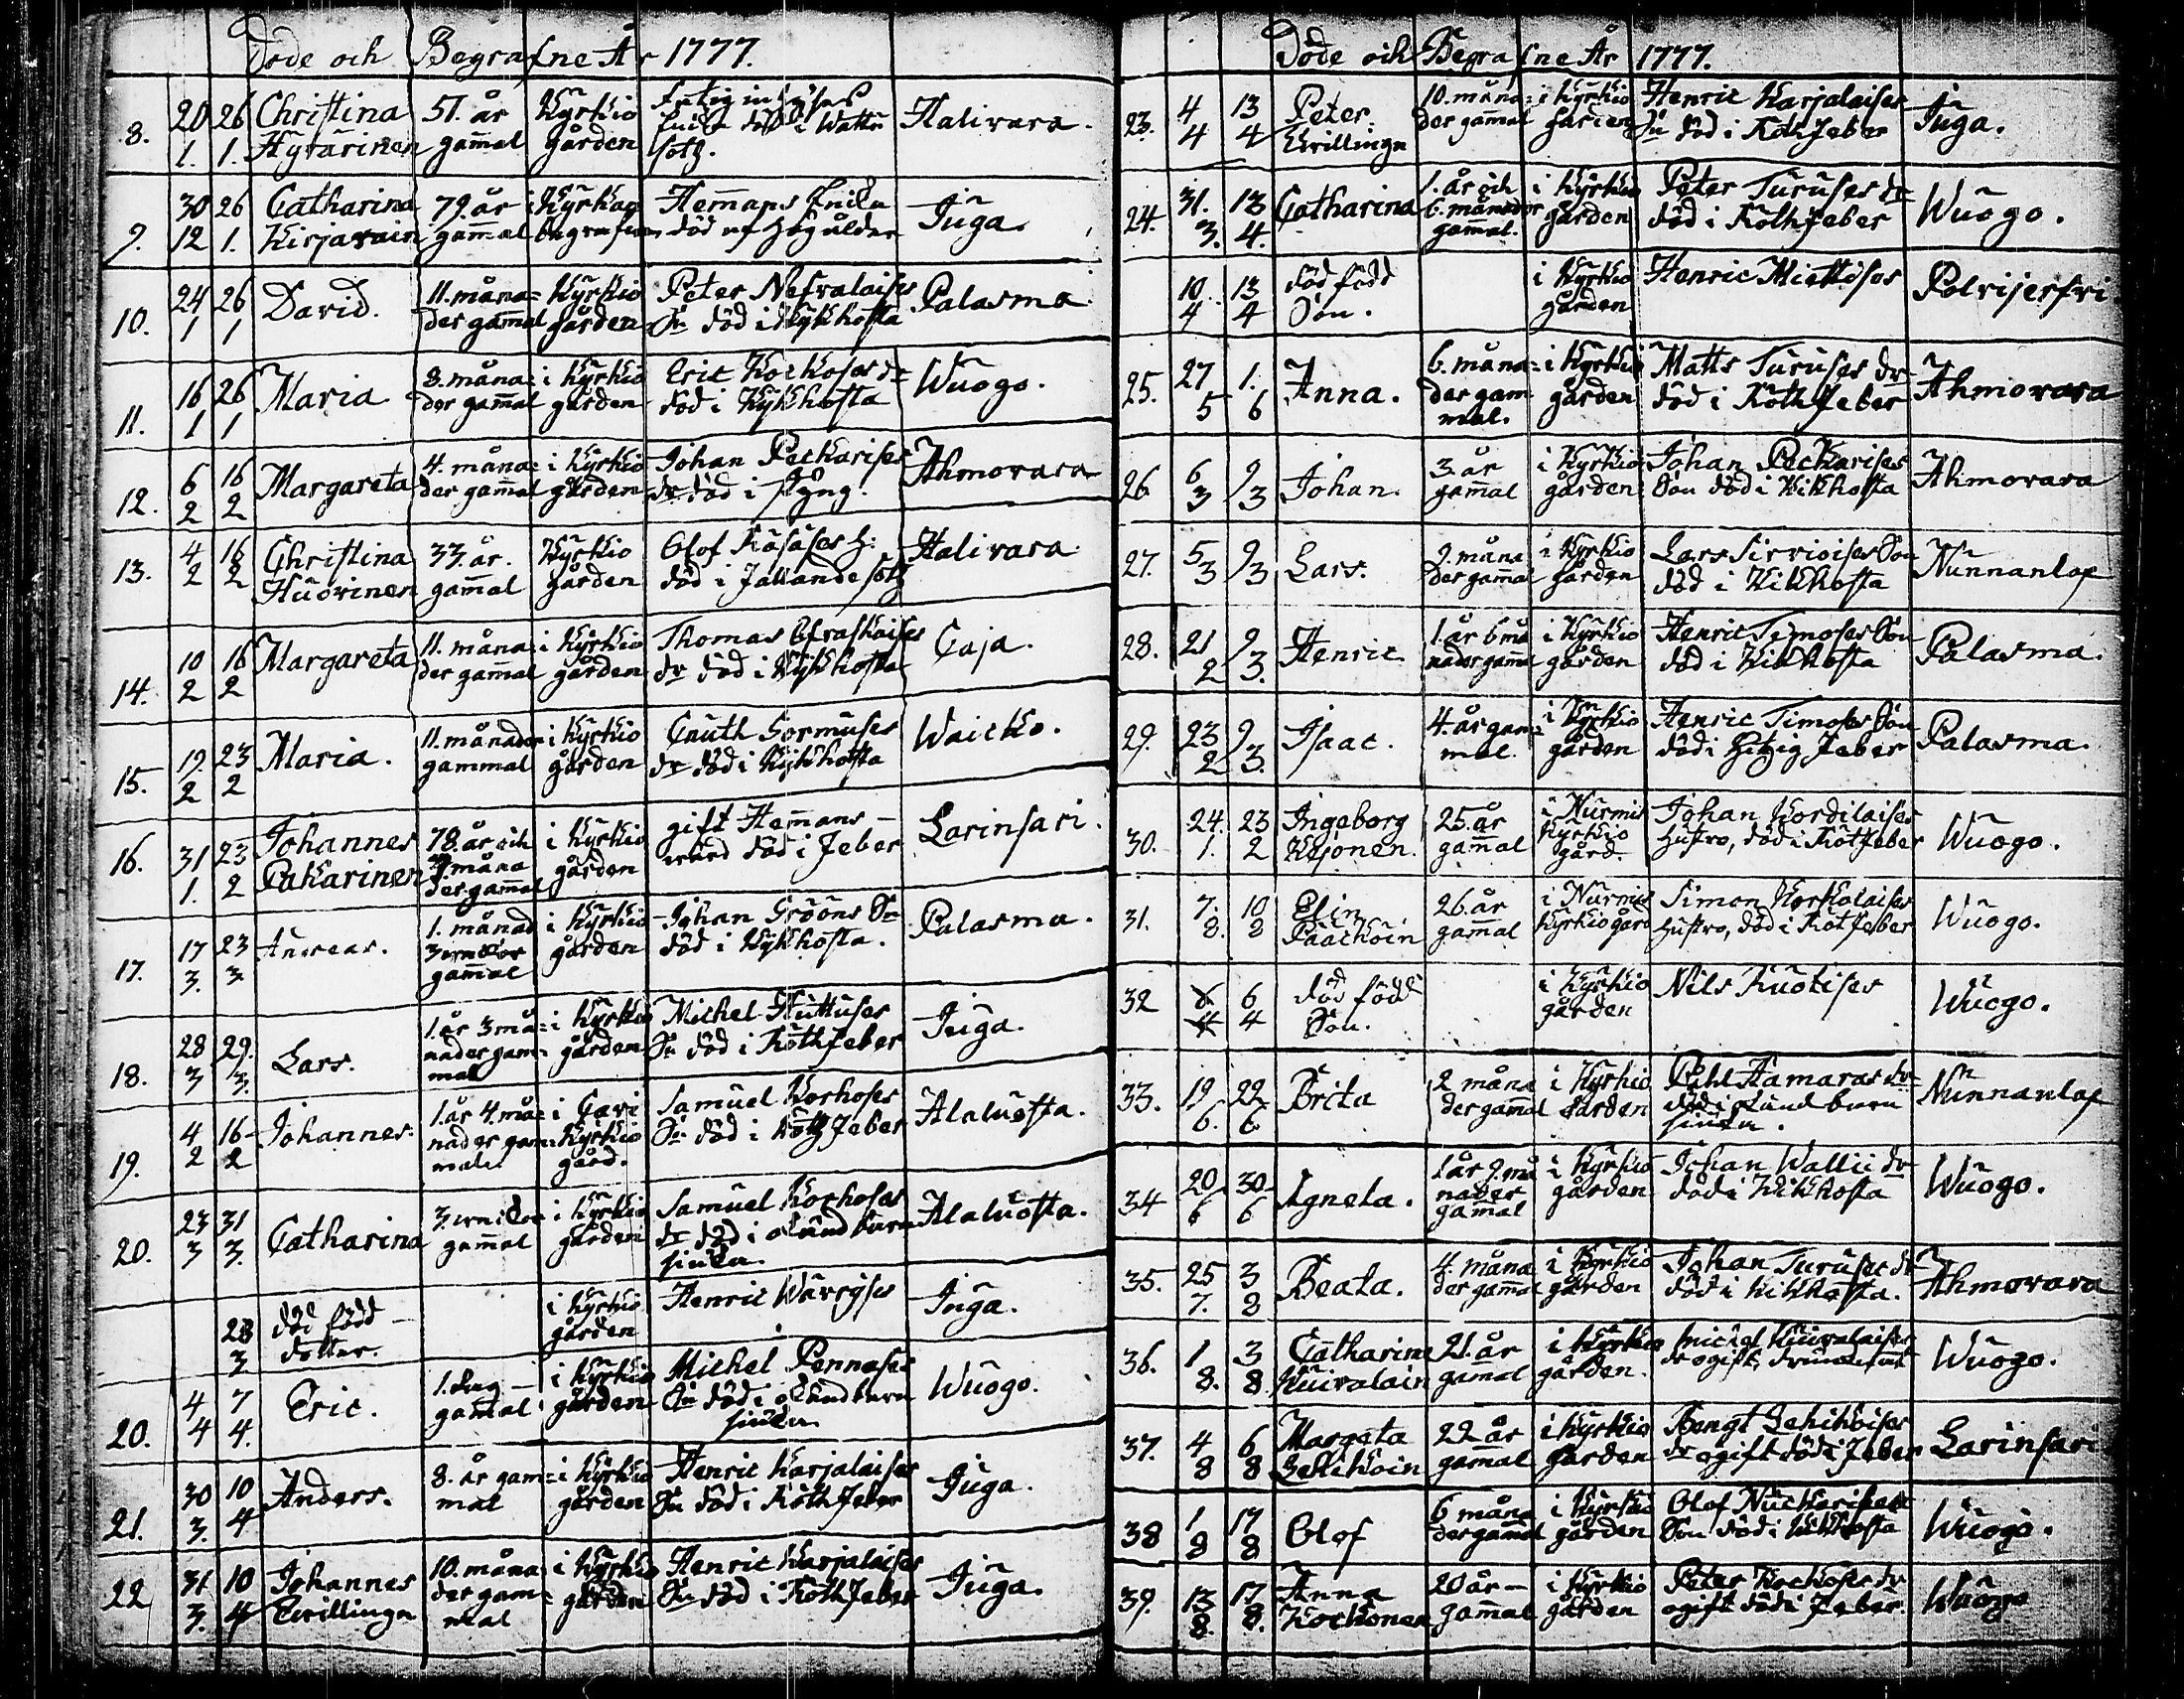 Döde och Begrafne År 1777.
8. 20/1. 26/1. Christina Hyvärinen 51. år gam̄al Kyrkio gården Enka död i Wattu sotz. Halivara.
9. 30/12 26/1. Catharina Kirjavain 79. år gam̄al i Kyrkan begrafven Hem̄ans Enka död af hög ålder Juga.
10. 24/1 26/1 David. 11. måna= der gam̄al Kyrkio gården Peter Nefvalaises Sn död i Kykhosta Palasma.
11. 16/1 26/1 Maria 8. måna= der gam̄al i Kyrkio gården Eric Kockoses dr död i Kykhosta Wuogo.
12. 6/2 16/2 Margareta 4. måna= der gam̄al i Kyrkio gården Johan Peckarises dr död i Ahmovara
13. 4/2 16/2 Christina Huovinen 33. år. gam̄al Kyrkio gården Olof Räsäses h: död i fallandesotz Halivara
14. 10/2 16/2 Margareta 11. måna= der gam̄al i Kyrkio gården Thomas dr död i Kykhosta Caja.
15. 19./2 23/2 Maria. 11. månader gammal i Kyrkio gården Cnuth Gormuses dr död i Kykhosta Waicko.
16. 31/1. 23/2 Johannes Pakarinen 78. år och måna der gam̄al i Kyrkio gården gift Hemans= död i feber Larinsari.
17. 17/3. 23/3 Andreas. 1. månad 3 gam̄al i Kyrkio gården Johan Gröons Sn död i Kykhosta. Palasma.
18. 28/3 29./3. Lars. 1. år 3 må= nader gam= mal i Kyrkio gården Michel Huttuses Sn död i Röthfeber Juga.
19. 4/2 16/2 Johannes. 1. år 4. må= nader gam= mal. i Cavi Kyrkio gård. Samuel Korhoses Sn död i Rötfeber Alaluosta.
20. 23/3 31/3. Catharina 3. gam̄al i Kyrkio gården Samuel Korhoses dr död i okänd barn siuka. Alaluosta.
28/3 död född dotter. i Kyrkio gården Henric Juga.
20. 4/4 7/4. Eric. 1. dag gam̄al i Kyrkio gården Michel Pennases Sn död i okänd barn siuka Wuogo.
21. 30/3. 10/4 Anders. 8. år gam= mal i Kyrkio gården Henric Karjalaises Sn död i Röthfeber Juga.
22 31/3. 10/4 Johannes Tvillinga 10. måna der gam= mal i Kyrkio gården Henric Karjalaises Sn död i Röthfeber Juga.
Döde och Begrafne År 1777.
23. 4/4 13/4 Peter. Tvillinga 10. måna= der gam̄al i Kyrkio gården Henric Karjalaises Sn död i Rothfeber Juga.
24. 31./3. 13/4. Catharina 1. år och 6. månader gam̄al. i Kyrkio gården Peter Turuses dr död i Rothfeber Wuogo.
10/4 13/4 död född Son. i Kyrkio gården Henric Miettises Polvijerfvi
25. 27/5 1./6 Anna. 6. måna= der gam mal. i Kyrkio gården Matts Turuses dr död i Röthfeber Ahmovara
26 6/3 9/3 Johan. 3. år gam̄al i Kyrkio gården Johan Peckarises Son död i Kikhosta Ahmovara
27. 5/3 9/3 Lars. 2. måna der gam̄al i Kyrkio gården Lars Sirvioises Son död i Kikhosta Nunnanlax
28. 21/2 9/3. Henric 1. år 6 må nader gam̄a i Kyrkio gården Henric Timoses Son död i Kikhosta Palasma.
29. 23/2 9/3. Isaac. 4. år gam= mal. i Kyrkio gården Henric Timoses Son död i hitzig feber Palasma.
30. 24./1. 23/2 Ingeborg Kejonen. 25. år gam̄al i Nurmis Kyrkio gård. Johan Kordilaises hustro, död i Rötfeber Wuogo.
31. 7./8. 10/8 Elin Paackoin 26. år gam̄al i Nurmis Kyrkiogård Simon Korkolaises hustro, död i Rötfeber Wuogo.
32 6/4 död född Son. i Kyrkio gården Nils Kuotises Wuogo.
33. 19/6. 22/6. Brita 2 måna der gam̄al i Kyrkio gården Pehl Hamaras dr död i okänd barn siuka. Nunnanlax
34 20/6 30/6 Agneta. 1 år 9. må nader gam̄al i Kyrkio gården Johan Wallii dr död i Kikhosta Wuogo.
35. 25/7. 3/8 Beata. 4. måna der gam̄al i Kyrkio gården Johan Turuses dr död i Kikhosta. Ahmovara
36. 1/8. 3/8 Catharina Kuivalain 21. år gam̄al i Kyrkio gården. Michel Kuivalaises dr ogift, Wuogo.
37. 4/8 6/8 Margeta Zehikoin 22 år gam̄al i Kyrkio gården Bengt Zehikoises dr ogift död i feber Larinsari
38 1/8 17/8 Olof 6 måna der gam̄al i Kyrkio gården Olof Nuckarises Son död i Kikhosta Wuogo.
39. 13/8. 17/8. Anna Kockonen 20 år gam̄al i Kyrkio gården Peter Kockoses dr ogift död i feber. Wuogo